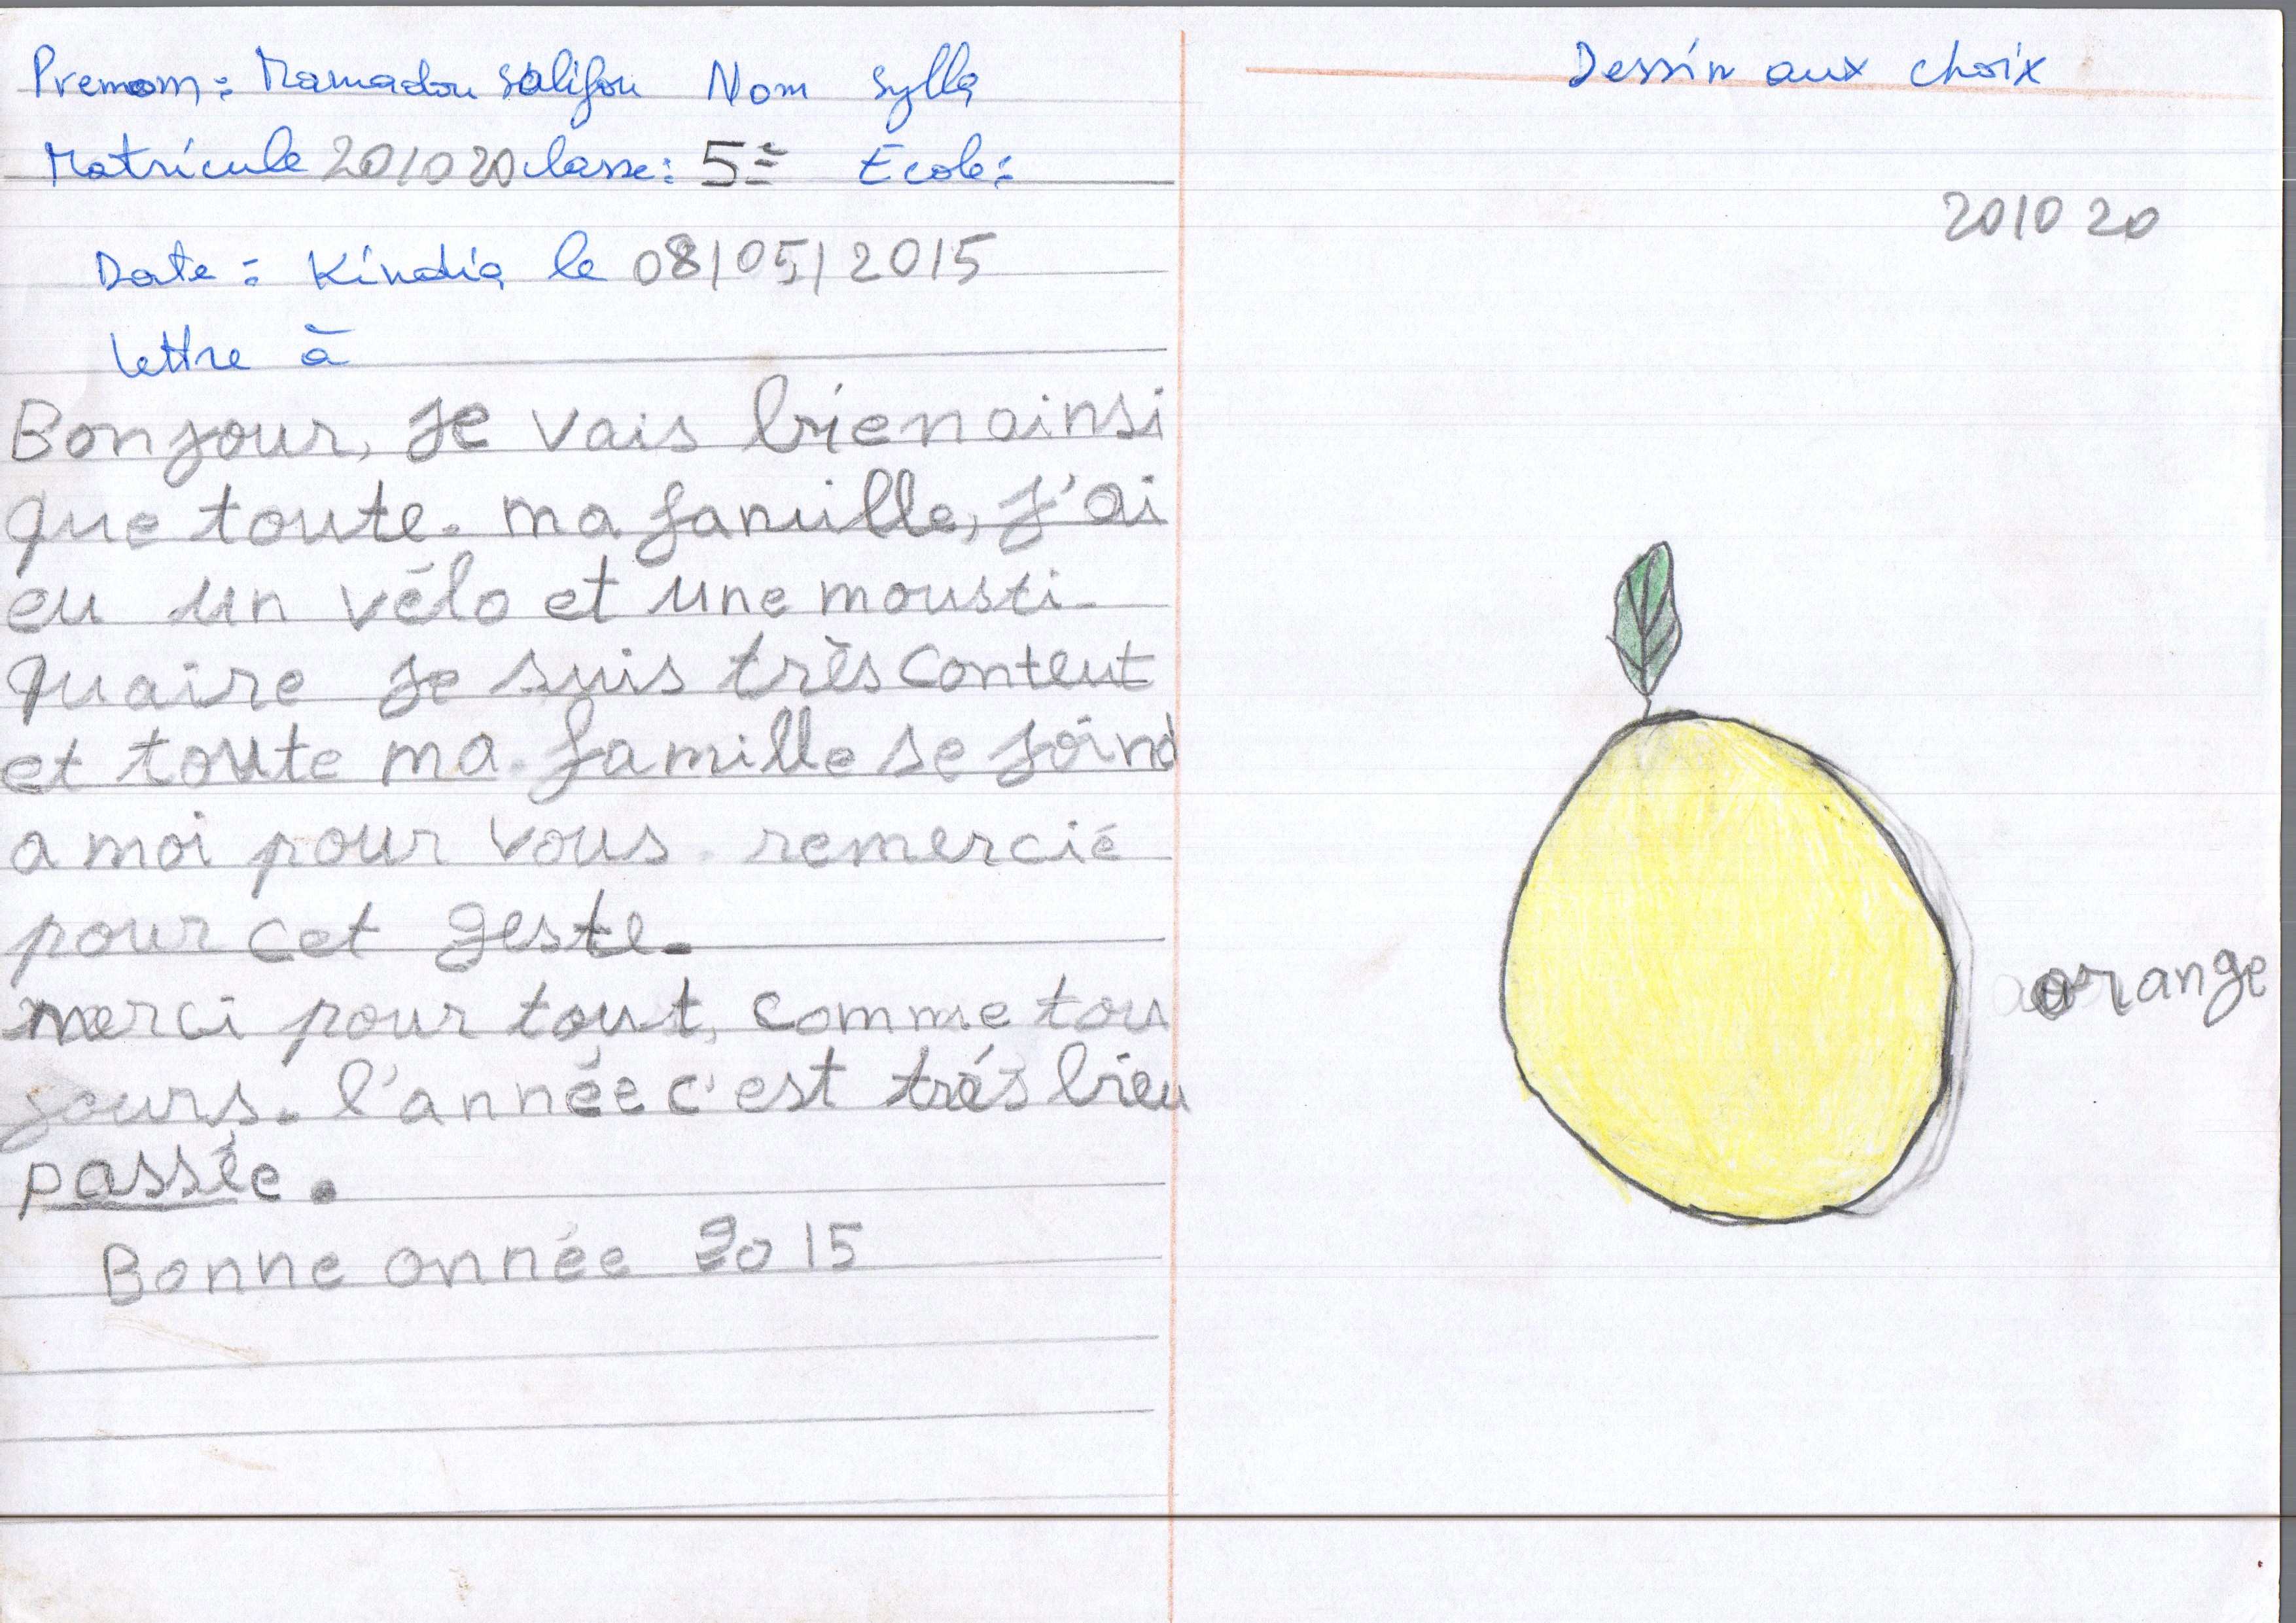 Prenom: Mamadou Salifou Nom Sylla
Matricule 201020 classe: 5è Ecole:
Date: Kindia le 08/05/2015
Lettre à
Bonjour, je vais bien ainsi
que toute. ma famille, j'ai
eu un vélo et une mousti-
quaire je suis très content
et toute ma famille se joind
a moi pour vous remercié
pour cet geste.
merci pour tout, comme tou
jours. l'année c'est trés bien
passée.
Bonne année 2015
Dessin aux choix
2010 20
orange